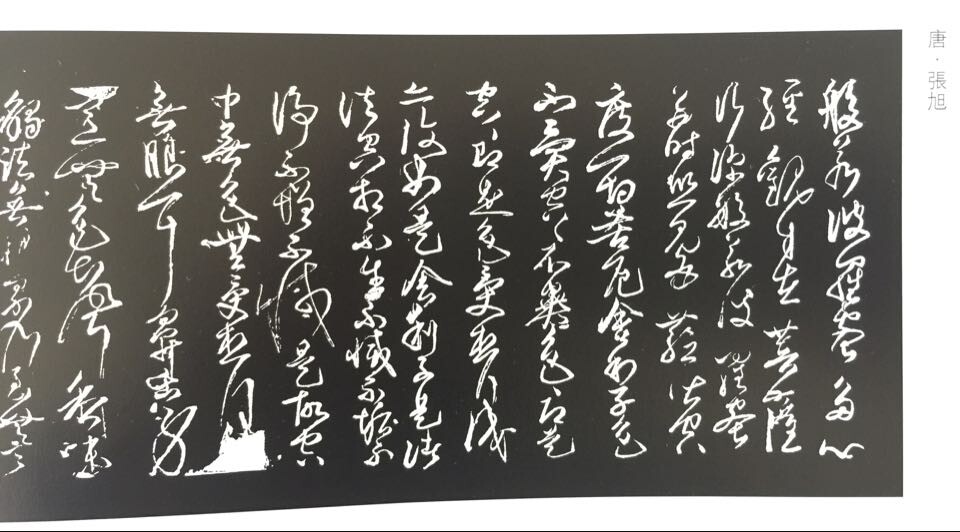 唐·張旭
般若波羅蜜多心
經觀自在菩薩
行深般若波羅蜜
多時照見五蘊皆空
度一切苦厄舍利子色
不異空〻不異色〻即是
空〻即是色受想行識
亦復如是舍利子是諸
法空相不生不滅不垢不
淨不增不減是故空
中無色無受想行
無眼耳鼻舌身
意無色聲香味
觸法無眼界乃至無意